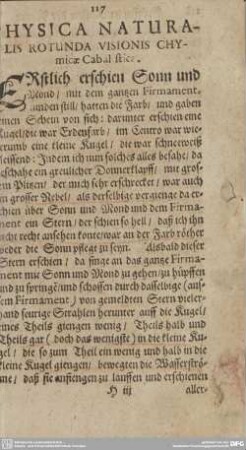 117
HYSICA NATURA-
LIS ROTUNDA VISIONIS CHY-
micæ Cabal sticæ.
ERstlich erschien Sonn und
Mond/ mit dem gantzen Firmament,
unden still/ hatten die Farb/ und gaben
inen Schein von sich: darunter erschien eine
Kugel/ die war Erdenfarb/ im Centro war wie-
erumb eine kleine Kugel/ die war schneeweiß
leissend: Indem ich nun solches alles besahe/ da
eschahe ein greulicher Donnerklapff/ mit gros-
em Pitzen/ der mich sehr erschrecket/ war auch
in grosser Nebel/ als derselbige vergienge da er-
chien über Sonn und Mond und dem Firma-
ment ein Stern/ der schien so hell/ daß ich ihn
nicht recht ansehen konte/ war an der Farb röther
weder die Sonn pflegt zu seyn. Alsbald dieser
Stern erschien/ da fienge an das gantze Firma-
ment mit Sonn und Mond zu gehen/ zu hüpffen
und zu springe/ und schossen durch dasselbige (auß
em Firmament) von gemeldten Stern vieler-
hand feurige Strahlen herunter auff die Kugel/
eines Theils giengen wenig/ Theils halb und
Theils gar (doch das wenigste) in die kleine Ku-
gel/ die so zum Theil ein wenig und halb in die
kleine Kugel giengen/ bewegten die Wasserströ-
me/ daß sie anfiengen zu lauffen und erschienen
H iij aller-